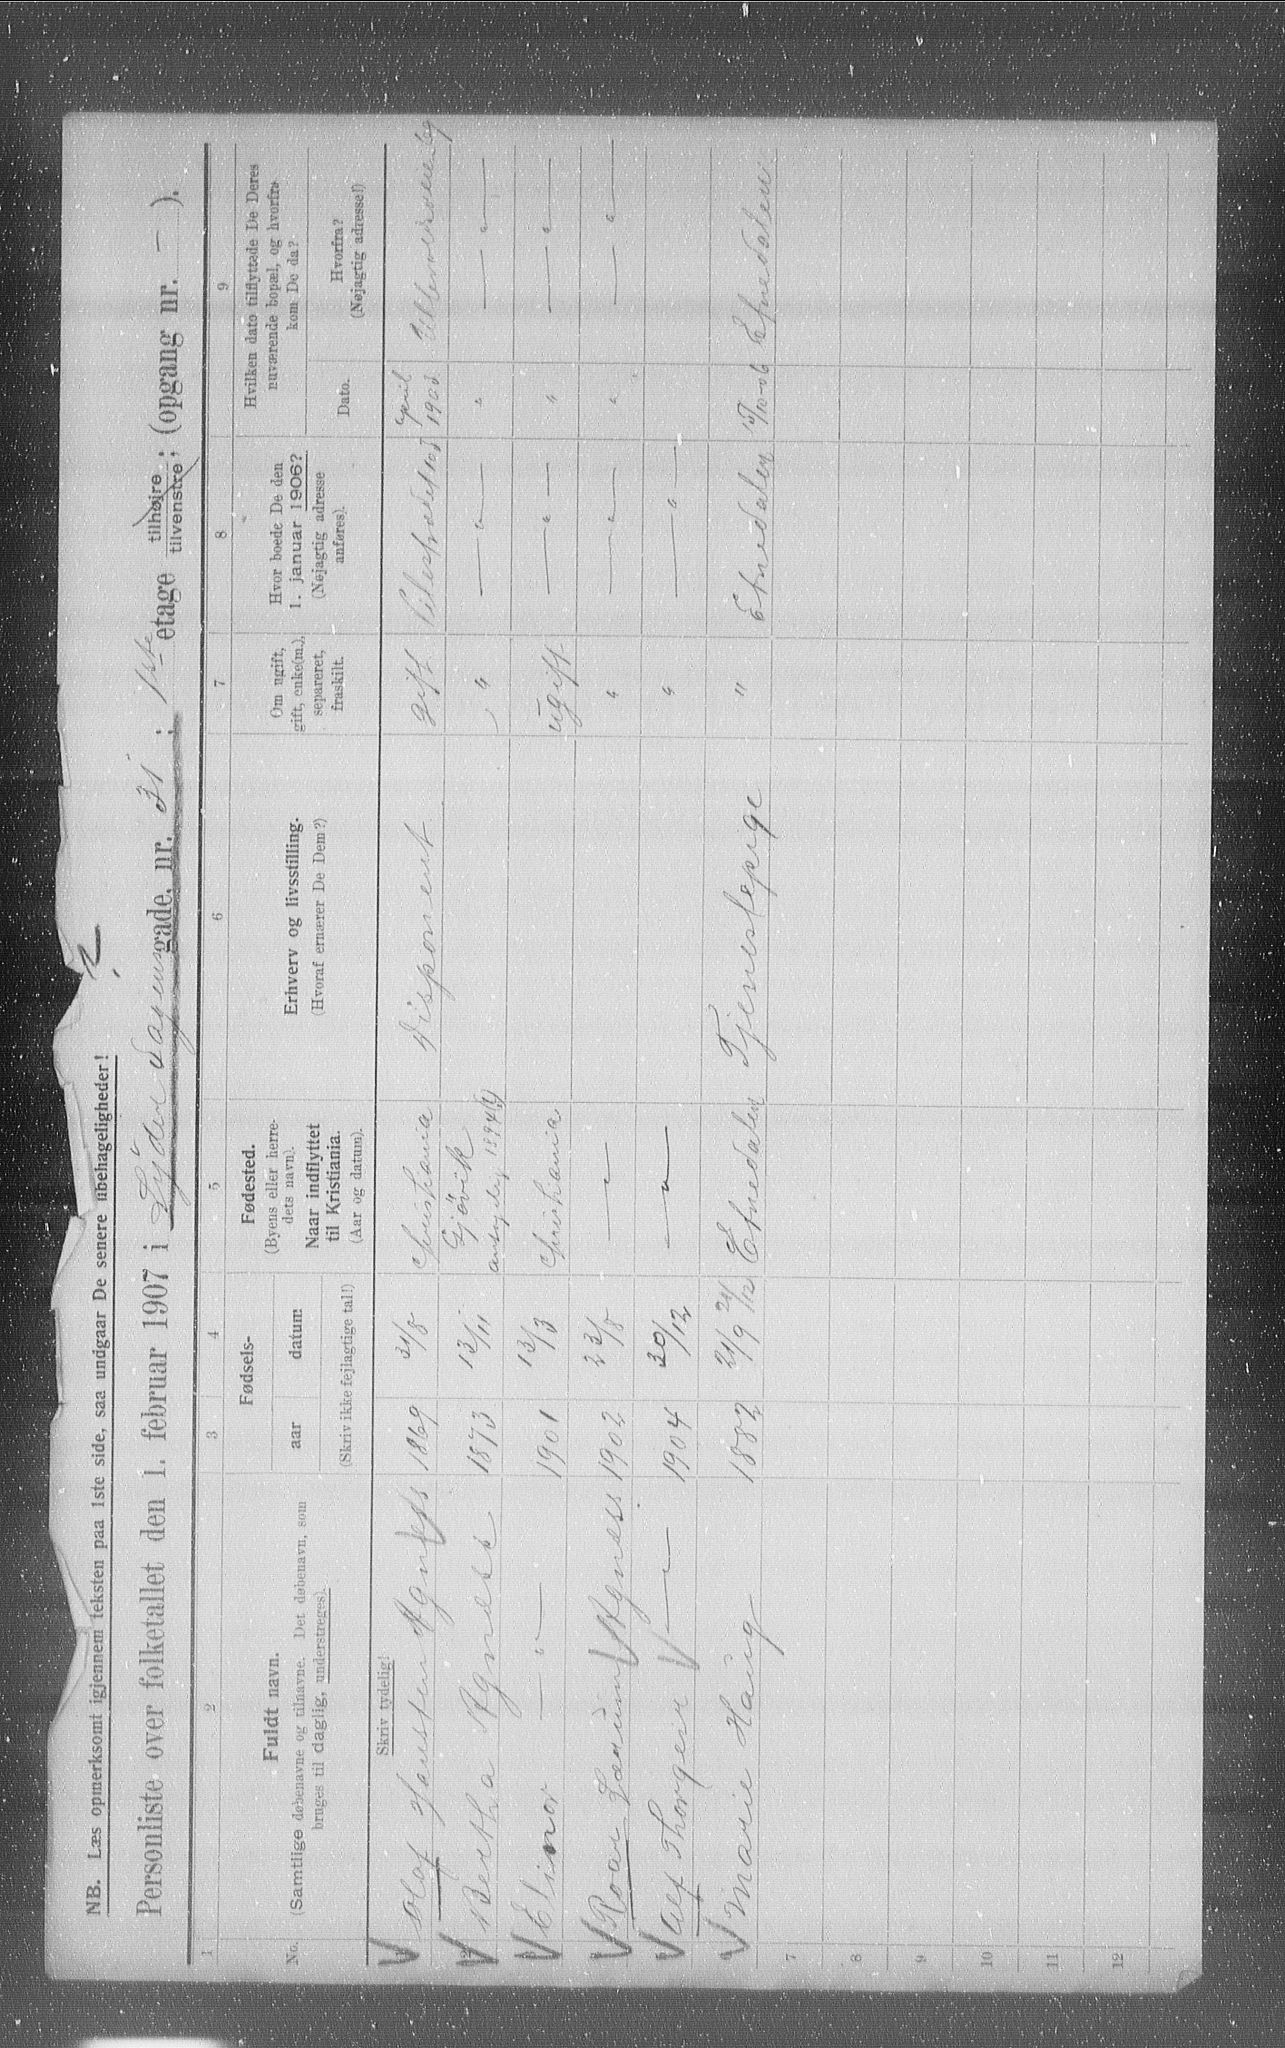 NB. Læs opmerksomt igjennem teksten paa 1ste side, saa undgaar De senere ubehageligheder!
Personliste over folketallet den 1. februar 1907 i Lyder Sagens gade, nr. 31 ; 1ste etage tilhøire tilvenstre ; (opgang nr. — ).
1 2 3 4 5 6 7 8 9
No.
Fuldt navn.
(Samtlige døbenavne og tilnavne. Det døbenavn, som
bruges til daglig, understreges).
Fødsels-
aar datum
(Skriv ikke fejlagtige tal!)
Fødested.
(Byens eller herre-
dets navn).
Naar indflyttet
til Kristiania.
(Aar og datum).
Erhverv og livsstilling.
(Hvoraf ernærer De Dem?)
Om ugift,
gift, enke(m.),
separeret,
fraskilt.
Hvor boede De den
1. januar 1906?
(Nøjagtig adresse
anføres).
Hvilken dato tilflyttede De Deres
nuværende bopæl, og hvorfra
kom De da?
Dato.
Hvorfra?
(Nøjagtig adresse!)
Skriv tydelig!
1 Olaf Hansten 1869 31/8 Christiania Disponent gift Pilestrædet april 190
2 Bertha Agness 1873 13/11 Gjøvik 1894 " — " — " — " —
3 Elinor — " — 1901 13/3 Christiania ugift — " — " — " —
Roar Lærum Agness 1902 23/8 — " — " — " — " — " —
5 Alf Thorgeir — " — 1904 30/12 — " — " — " —
6 Marie Haug 1882 21/9 21/12 Etnedalen Tjenestepige " Etnedalen /10-06 Etnedalen
7
8
9
10
11
12